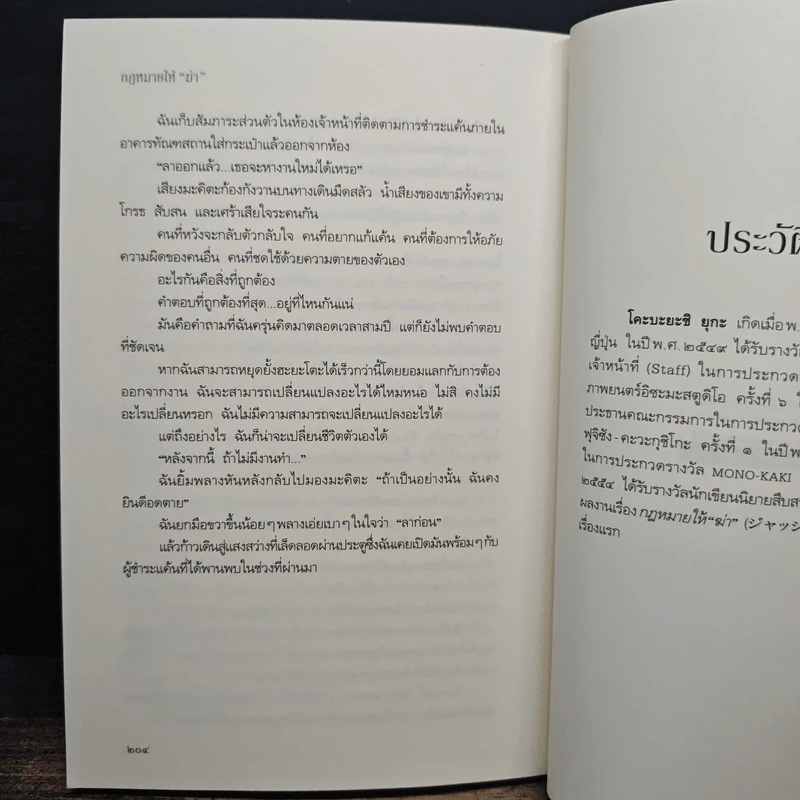 กฎหมายให้ “ฆ่า”
ฉันเก็บสัมภาระส่วนตัวในห้องเจ้าหน้าที่ติดตามการชำระแค้นภายใน
อาคารทัณฑสถานใส่กระเป๋าแล้วออกจากห้อง
“ลาออกแล้ว...เธอจะหางานใหม่ได้เหรอ”
เสียงมะคิตะก้องกังวานบนทางเดินมืดสลัว น้ำเสียงของเขามีทั้งความ
โกรธ สับสน และเศร้าเสียใจระคนกัน
คนที่หวังจะกลับตัวกลับใจ คนที่อยากแก้แค้น คนที่ต้องการให้อภัย
ความผิดของคนอื่น คนที่ชดใช้ด้วยความตายของตัวเอง
อะไรกันคือสิ่งที่ถูกต้อง
คำตอบที่ถูกต้องที่สุด...อยู่ที่ไหนกันแน่
มันคือคำถามที่ฉันครุ่นคิดมาตลอดเวลาสามปี แต่ก็ยังไม่พบคำตอบ
ที่ชัดเจน
หากฉันสามารถหยุดยั้งฮะยะโตะได้เร็วกว่านี้โดยยอมแลกกับการต้อง
ออกจากงาน ฉันจะสามารถเปลี่ยนแปลงอะไรได้ไหมหนอ ไม่สิ คงไม่มี
อะไรเปลี่ยนหรอก ฉันไม่มีความสามารถจะเปลี่ยนแปลงอะไรได้
แต่ถึงอย่างไร ฉันก็น่าจะเปลี่ยนชีวิตตัวเองได้
“หลังจากนี้ ถ้าไม่มีงานทำ...”
ฉันยิ้มพลางหันหลังกลับไปมองมะคิตะ “ถ้าเป็นอย่างนั้น ฉันคง
ยินดีอดตาย”
ฉันยกมือขวาขึ้นน้อยๆ พลางเอ่ยเบาๆ ในใจว่า “ลาก่อน”
แล้วก้าวเดินสู่แสงสว่างที่เล็ดลอดผ่านประตูซึ่งฉันเคยเปิดมันพร้อมๆ กับ
ผู้ชำระแค้นที่ได้พานพบในช่วงที่ผ่านมา
๒๐๔
ประวัติ
โคะบะยะชิ ยุกะ เกิดเมื่อ พ.
ญี่ปุ่น ในปี พ.ศ. ๒๕๔๙ ได้รับรางวั
เจ้าหน้าที่ (Staff) ในการประกวด
ภาพยนตร์อิซะมะสตูดิโอ ครั้งที่ ๖ ใ
ประธานคณะกรรมการในการประกวด
ฟุจิซัง-คะวะกุชิโกะ ครั้งที่ ๑ ในปี พ
ในการประกวดรางวัล MONO-KAKI
๒๕๕๔ ได้รับรางวัลนักเขียนนิยายสืบส
ผลงานเรื่อง กฎหมายให้“ฆ่า” (ジャッジ
เรื่องแรก